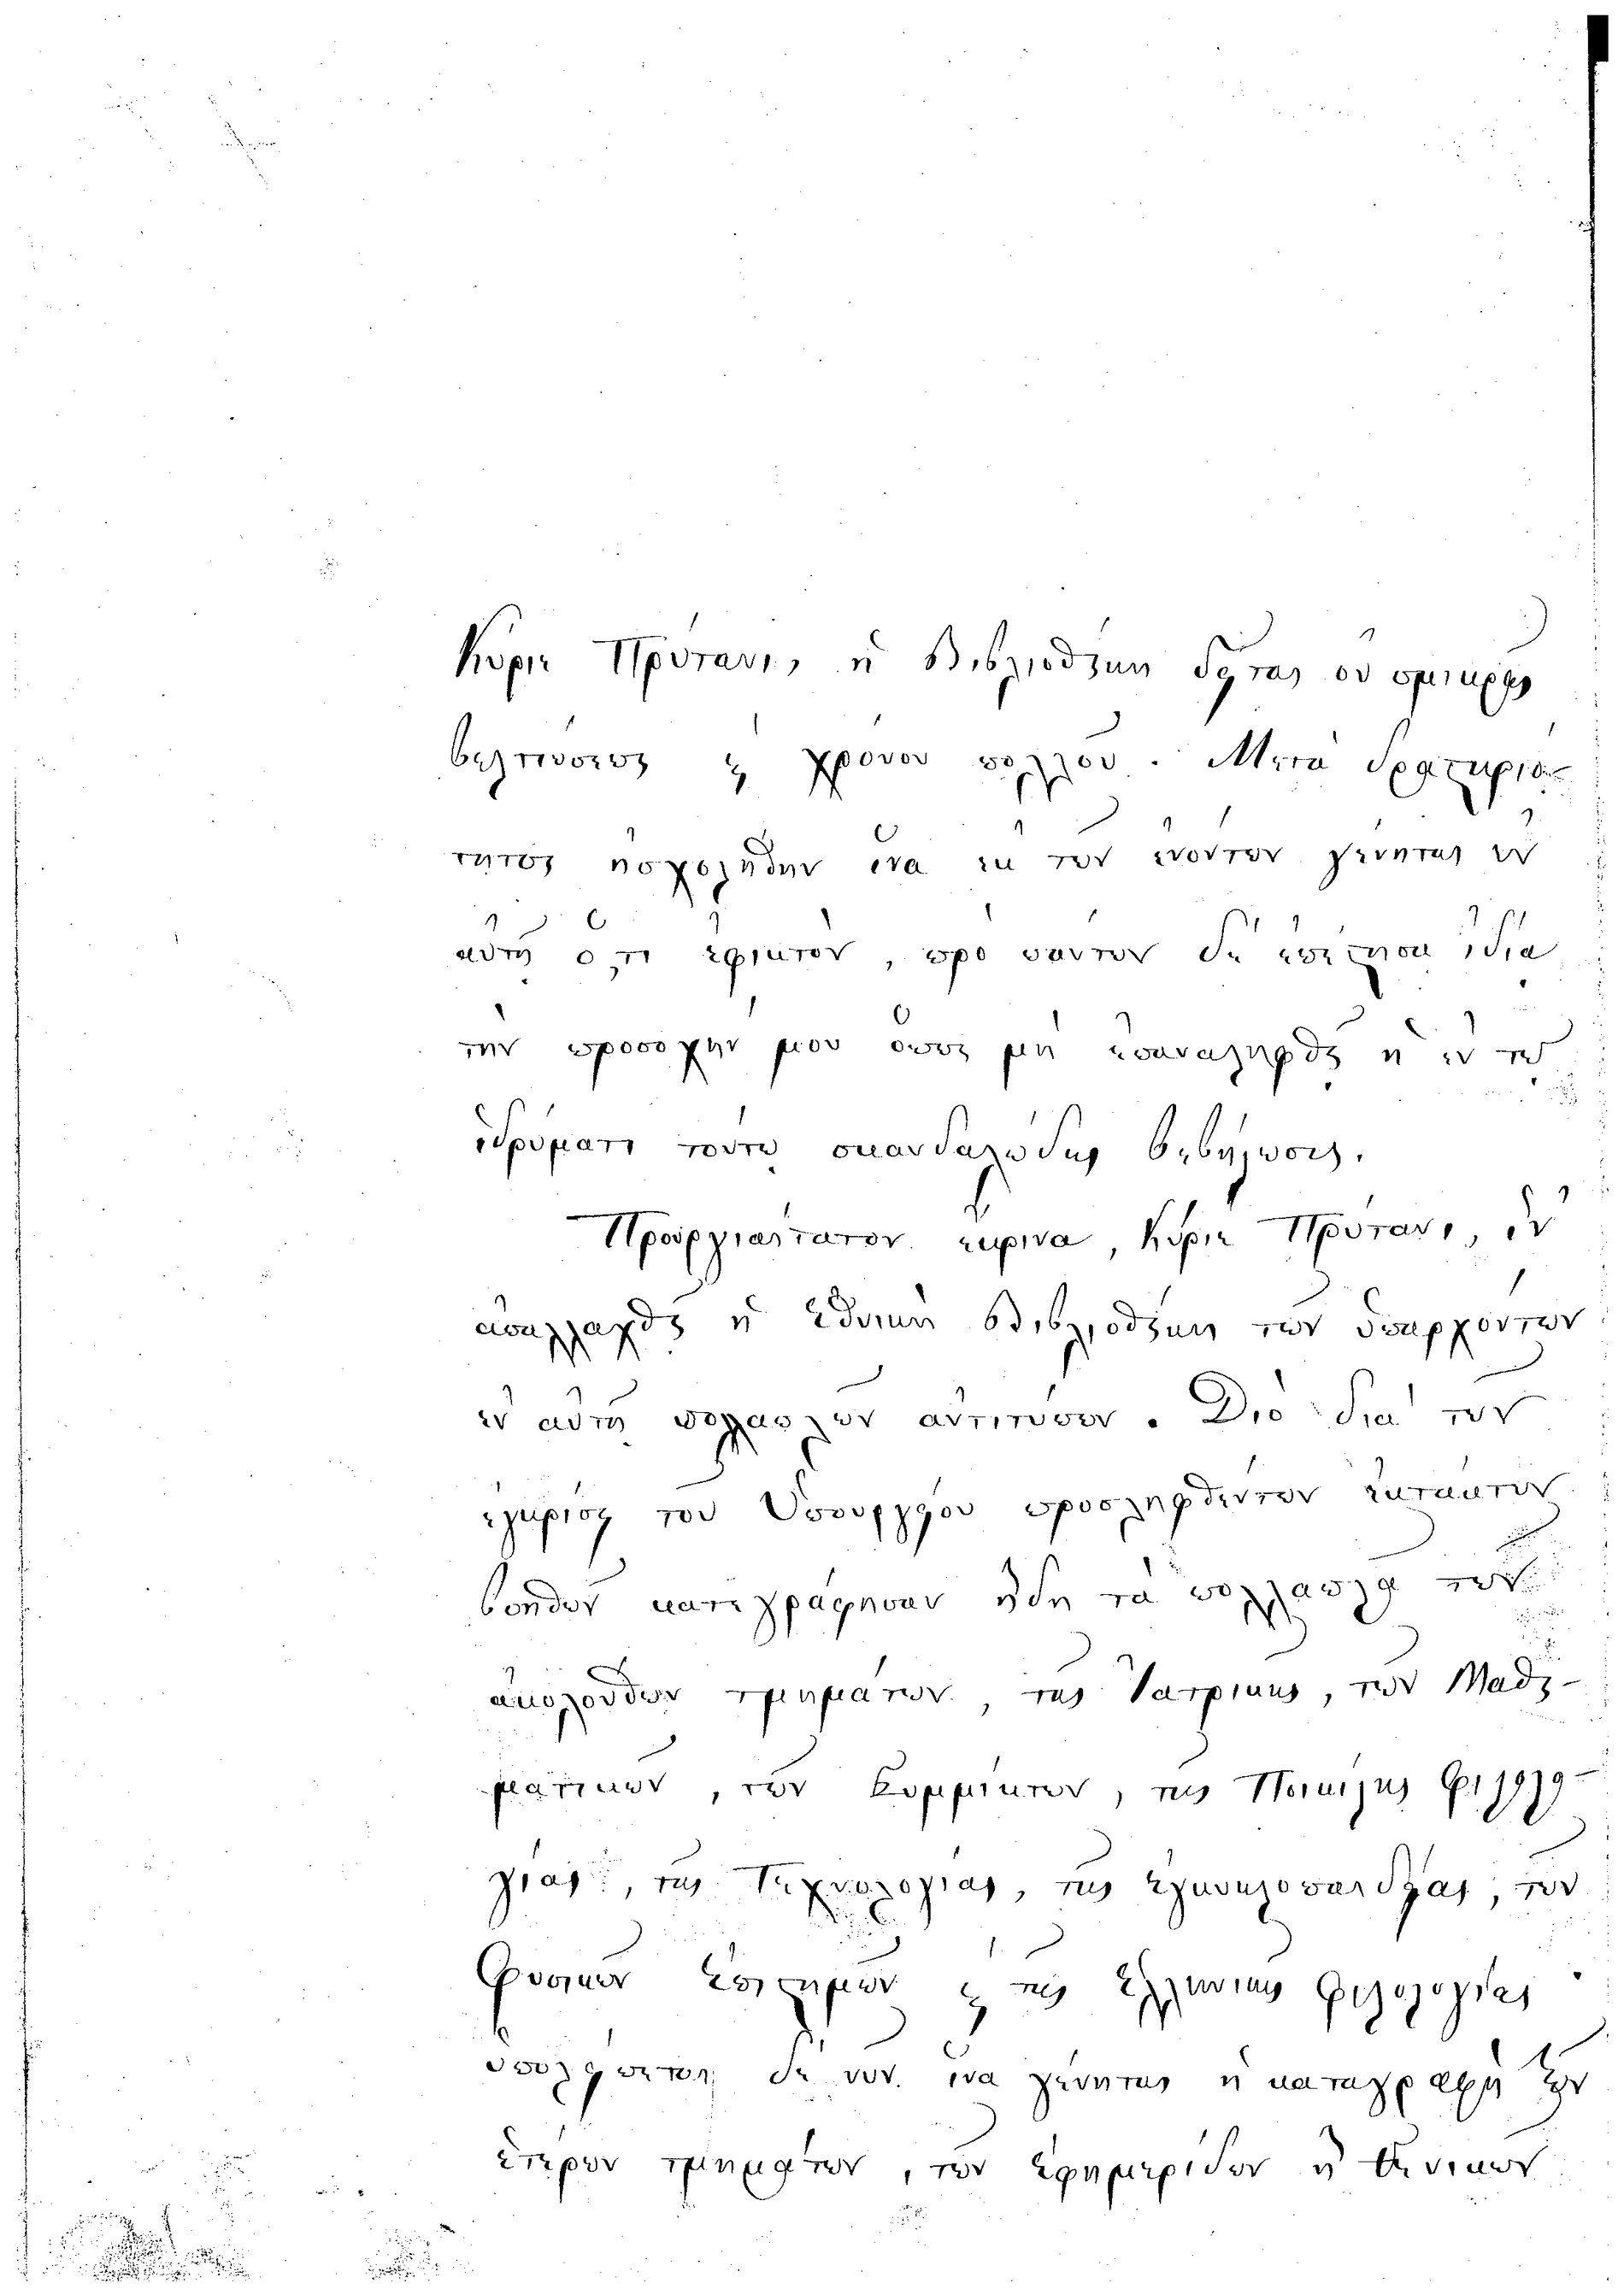 Κύριε Πρύτανι, ἡ Βιβλιοθήκη δεῖται οὐ σμικρᾶς
βελτιώσεως καὶ χρόνου πολλοῦ. Μετὰ δραστηριό-
τητος ἠσχολήθην ἵνα ἐκ τῶν ἐνόντων γείνηται ἐν
αὐτῇ ὅ,τι ἐφικτόν, πρὸ πάντων δὲ ἐπέστησα ἰδίᾳ
τὴν προσοχήν μου ὅπως μὴ ἐπαναληφθῇ ἡ ἐν τῷ
ἱδρύματι τούτῳ σκανδαλώδης βεβήλωσις.
Προὐργιαίτατον ἔκρινα, Κύριε Πρύτανι, ἵν'
ἀπαλλαχθῇ ἡ Ἐθνικὴ Βιβλιοθήκη τῶν ὑπαρχόντων
ἐν αὐτῇ πολλαπλῶν ἀντιτύπων. Διὸ διὰ τῶν
ἐγκρίσει τοῦ Ὑπουργείου προσληφθέντων ἐκτάκτων
βοηθῶν κατεγράφησαν ἤδη τὰ πολλαπλᾶ τῶν
ἀκολούθων τμημάτων, τῆς Ἰατρικῆς, τῶν Μαθη-
ματικῶν, τῶν Κομμίκτων, τῆς Ποικίλης Φιλολο-
γίας, τῆς Τεχνολογίας, τῆς Ἐγκυκλοπαιδείας, τῶν
Φυσικῶν Ἐπιστημῶν καὶ τῆς Ἑλληνικῆς Φιλολογίας
ὑπολείπεται δὲ νῦν ἵνα γείνηται ἡ καταγραφὴ τῶν
ἑτέρων τμημάτων, τῶν ἐφημερίδων ἢ